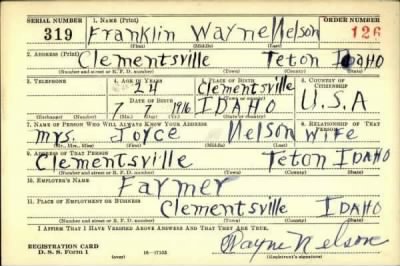 SERIAL NUMBER 1. NAME (Print) ORDER NUMBER
319 Franklin Wayne Nelson 126
(First) (Middle) (Last)
2. ADDRESS (Print)
Clementsville Teton IDAHO
(Number and street or R. F. D. number) (Town) (County) (State)
3. TELEPHONE 4. AGE IN YEARS 5. PLACE OF BIRTH 6. COUNTRY OF CITIZENSHIP
24 Clementsville
DATE OF BIRTH (Town or county)
7 7 1916 IDAHO U.S.A
(Exchange) (Number) (Mo.) (Day) (Yr.) (State or country)
7. NAME OF PERSON WHO WILL ALWAYS KNOW YOUR ADDRESS 8. RELATIONSHIP OF THAT PERSON
Mrs. Joyce Nelson Wife
(Mr., Mrs., Miss) (First) (Middle) (Last)
9. ADDRESS OF THAT PERSON
Clementsville Teton IDAHO
(Number and street or R. F. D. number) (Town) (County) (State)
10. EMPLOYER'S NAME
Farmer
11. PLACE OF EMPLOYMENT OR BUSINESS
Clementsville IDAHO
(Number and street or R. F. D. number) (Town) (County) (State)
I AFFIRM THAT I HAVE VERIFIED ABOVE ANSWERS AND THAT THEY ARE TRUE.
Wayne Nelson
REGISTRATION CARD
D. S. S. Form 1 (over) 16-17105 (Registrant's signature)